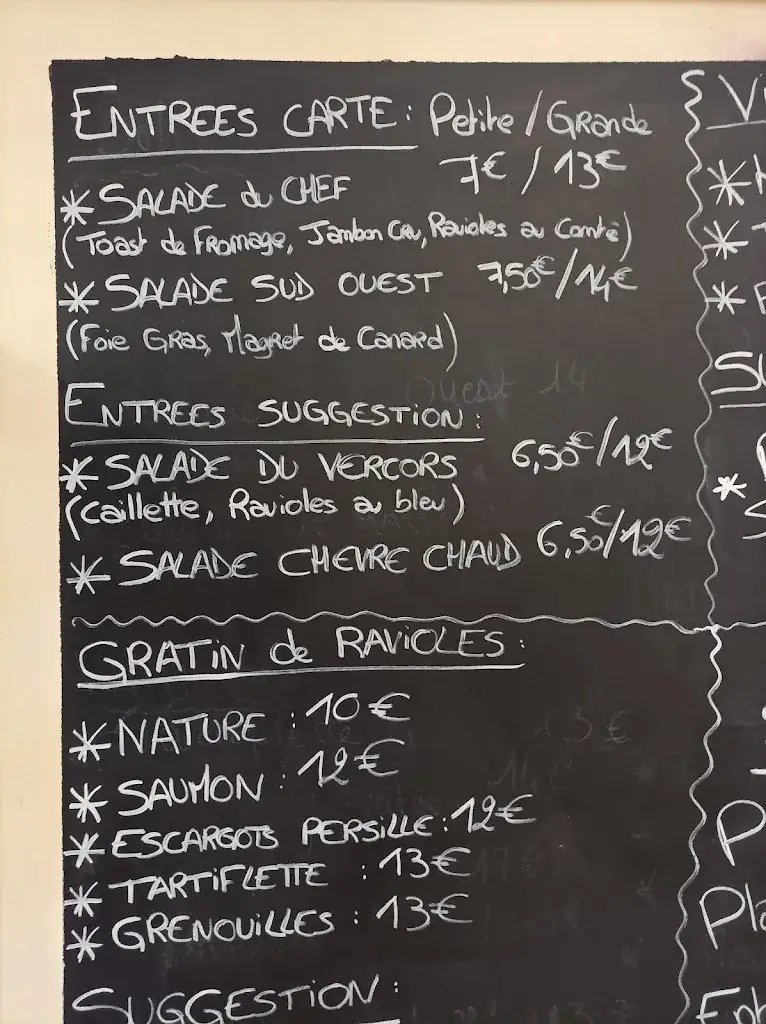 ENTREES CARTE : Petite / Grande
* SALADE du CHEF 7€ / 13€
(Toast de Fromage, Jambon Cru, Ravioles au Comté)
* SALADE SUD OUEST 7,50€/14€
(Foie Gras, Magret de Canard)
ENTREES SUGGESTION :
* SALADE DU VERCORS 6,50€/12€
(Caillette, Ravioles au bleu)
* SALADE CHEVRE CHAUD 6,50€/12€
GRATIN de RAVIOLES :
* NATURE : 10€
* SAUMON : 12€
* ESCARGOTS PERSILLE : 12€
* TARTIFLETTE : 13€
* GRENOUILLES : 13€
SUGGESTION :